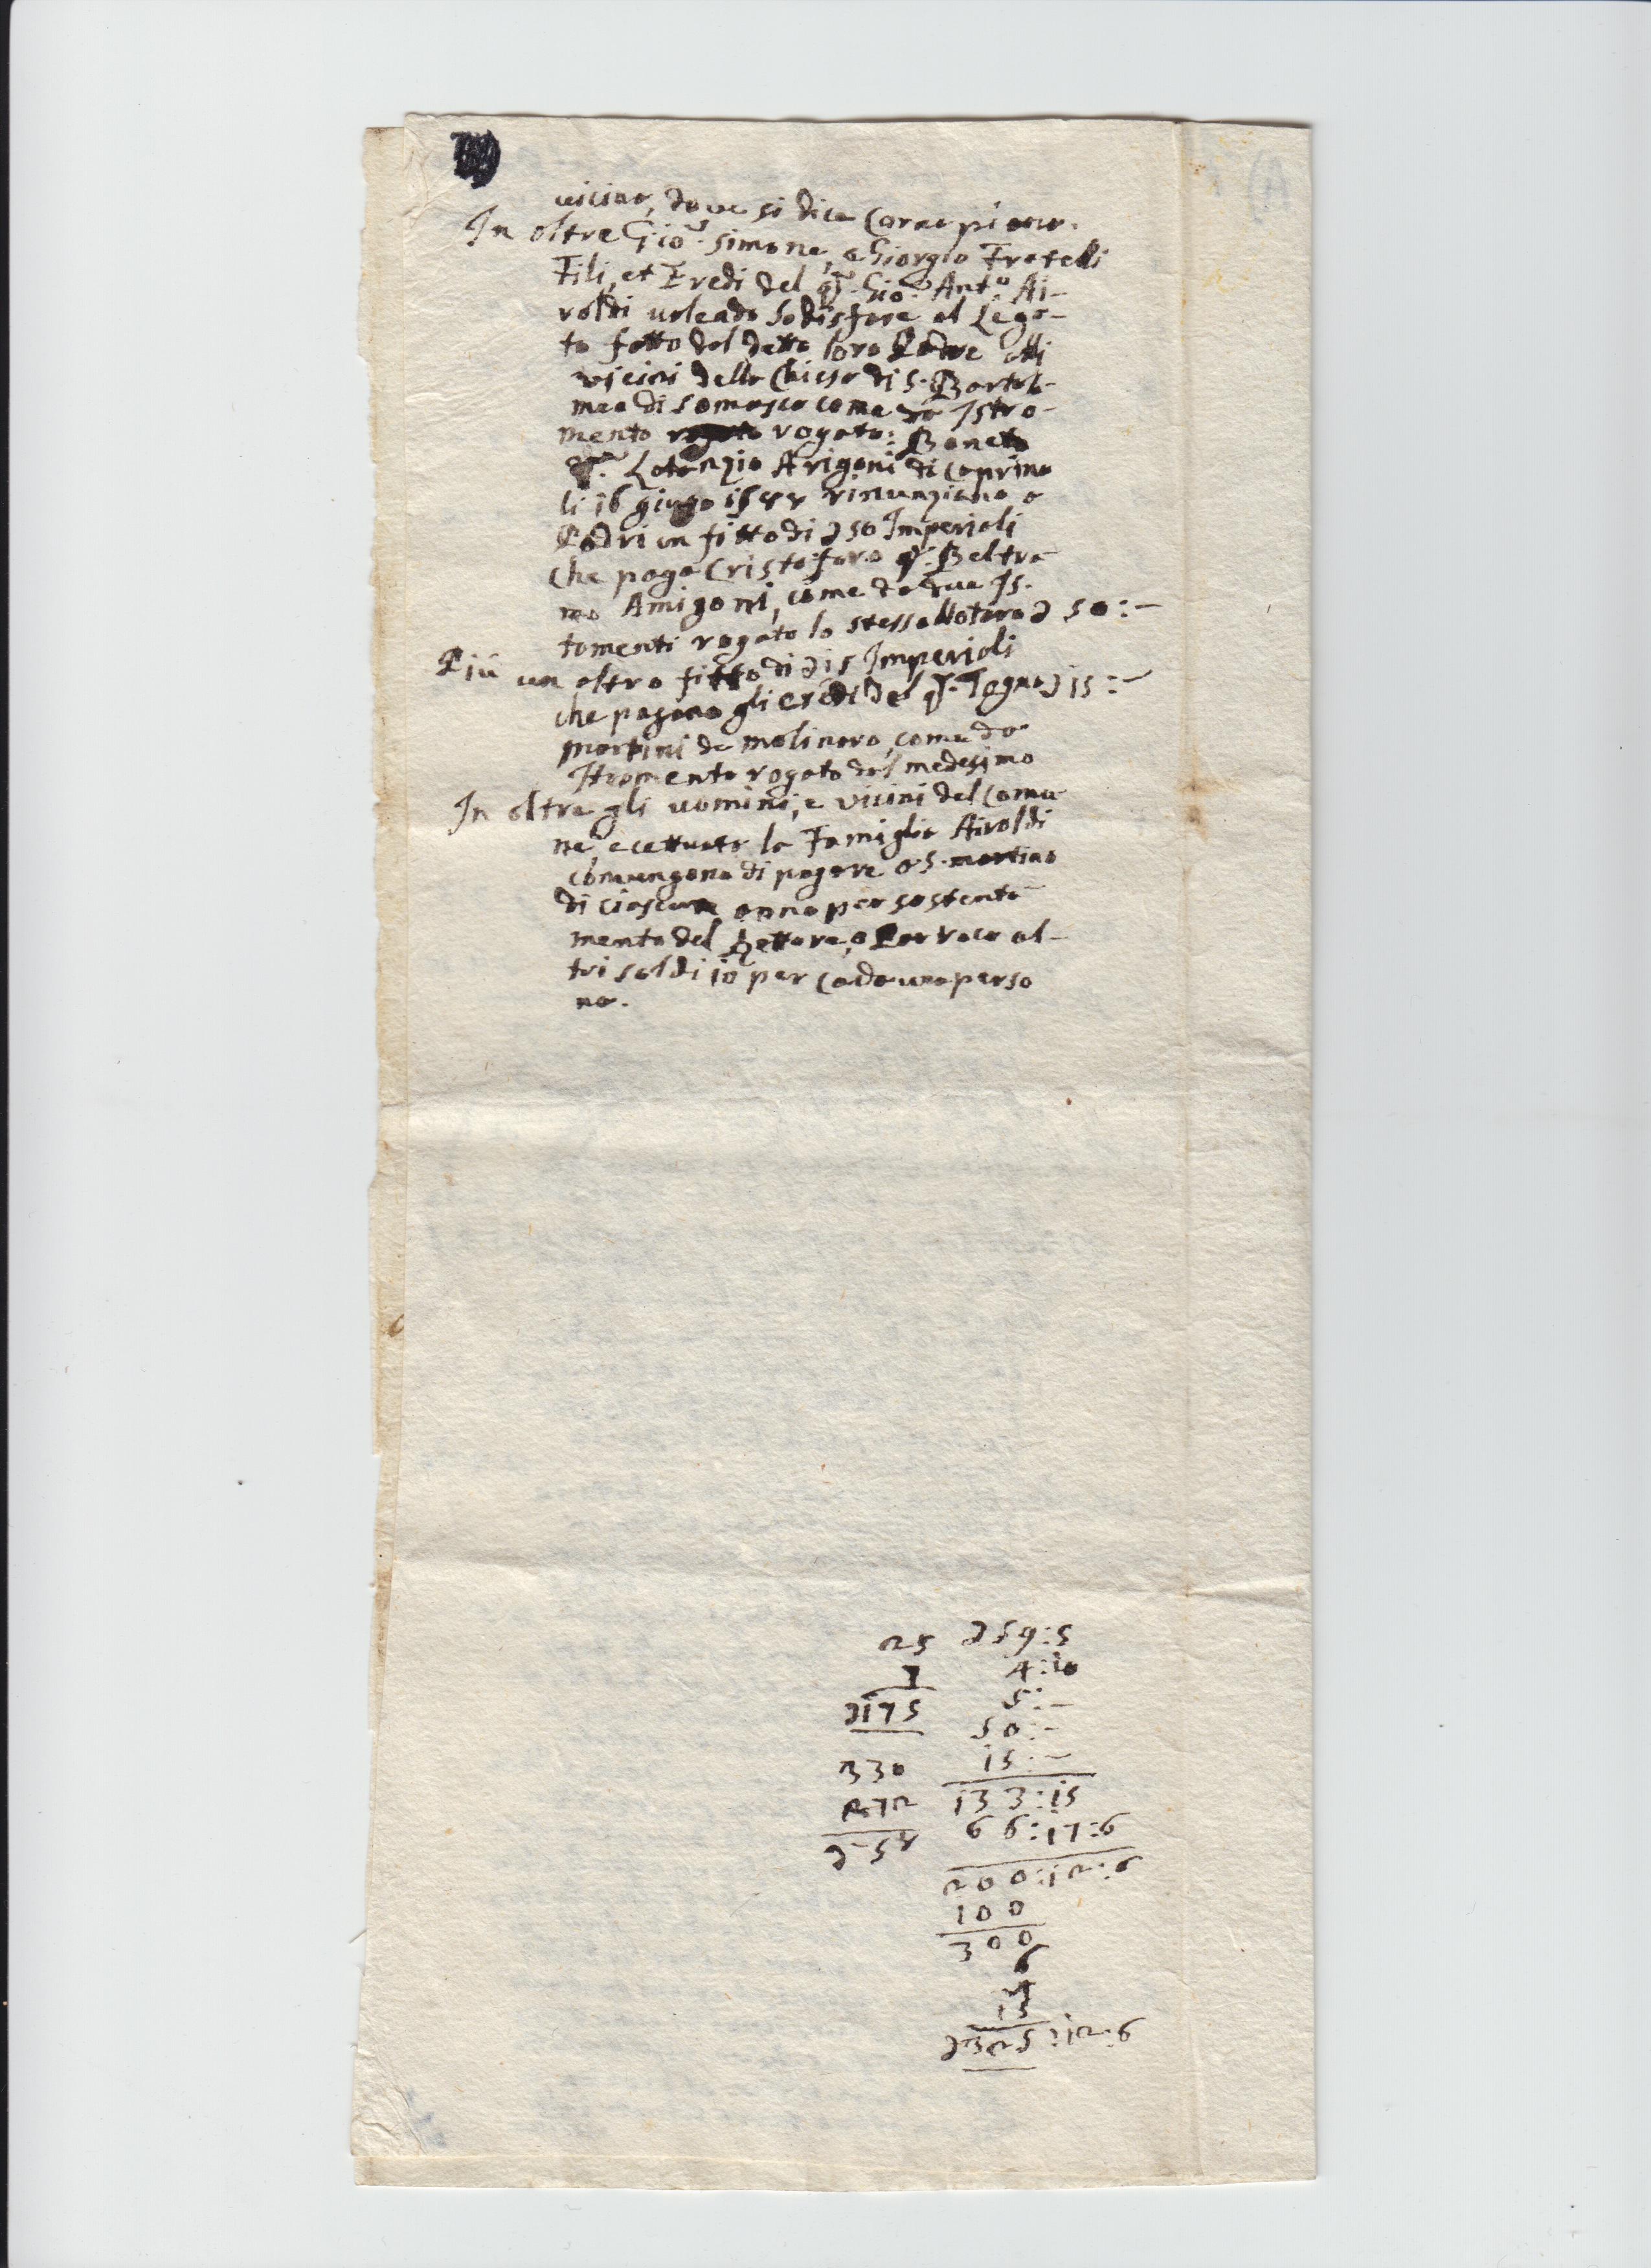 vicino, dove si dice Corno piano.
In oltre Gio: Simone, e Giorgio Fratelli
Fili, et Eredi del q. Gio: Ant.o Ai-
roldi volendo Sodisfare al Lega-
to fatto dal detto loro Padre alli
vicini della Chiesa di S. Bartolo-
meo di Somasca come da Istro-
mento rogato: Boneto
q. Lorenzio Arigoni di Caprino
li 16 giugo rinunziano a
Padri un fitto di 50 Imperiali
che paga Cristoforo q. Beltra-
mo Amigoni, come da due Is-
tomenti rogato lo stesso Notaro 50:-
Più un altro fitto di 15 Imperiali
che pagano gli eredi del q. Togno 15:-
martini de molinero, come da
Istromento rogato dal medesimo
In oltre gli uomini, e vicini del Comu-
ne, ecettuato la Famiglia Airoldi
convengono di pagare a S. martino
di ciascun anno per sostenta-
mento del Rettore, o Parroco al-
tri soldi 10 per cadauna perso
na.
25 59:5
7 4:10
175 5:-
50:-
330 15:-
272 133:15
58 66:17:6
200:12:6
100
300
6
13
325:12:6